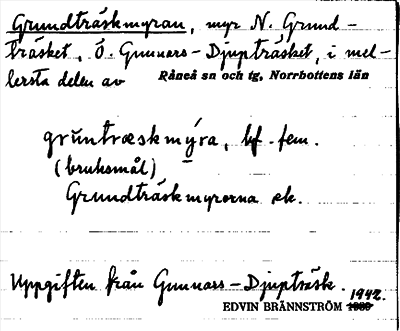 Grundträskmyran, myr N. Grund-
träsket, Ö. Gunnars-Djupträsket, i mel-
lersta delen av Råneå sn och tg, Norrbottens län
gruntræskmýra, bf. fem.
(bruksmål)
Grundträskmyrorna ek.
Uppgiften från Gunnars-Djupträsk. 1942.
EDVIN BRÄNNSTRÖM